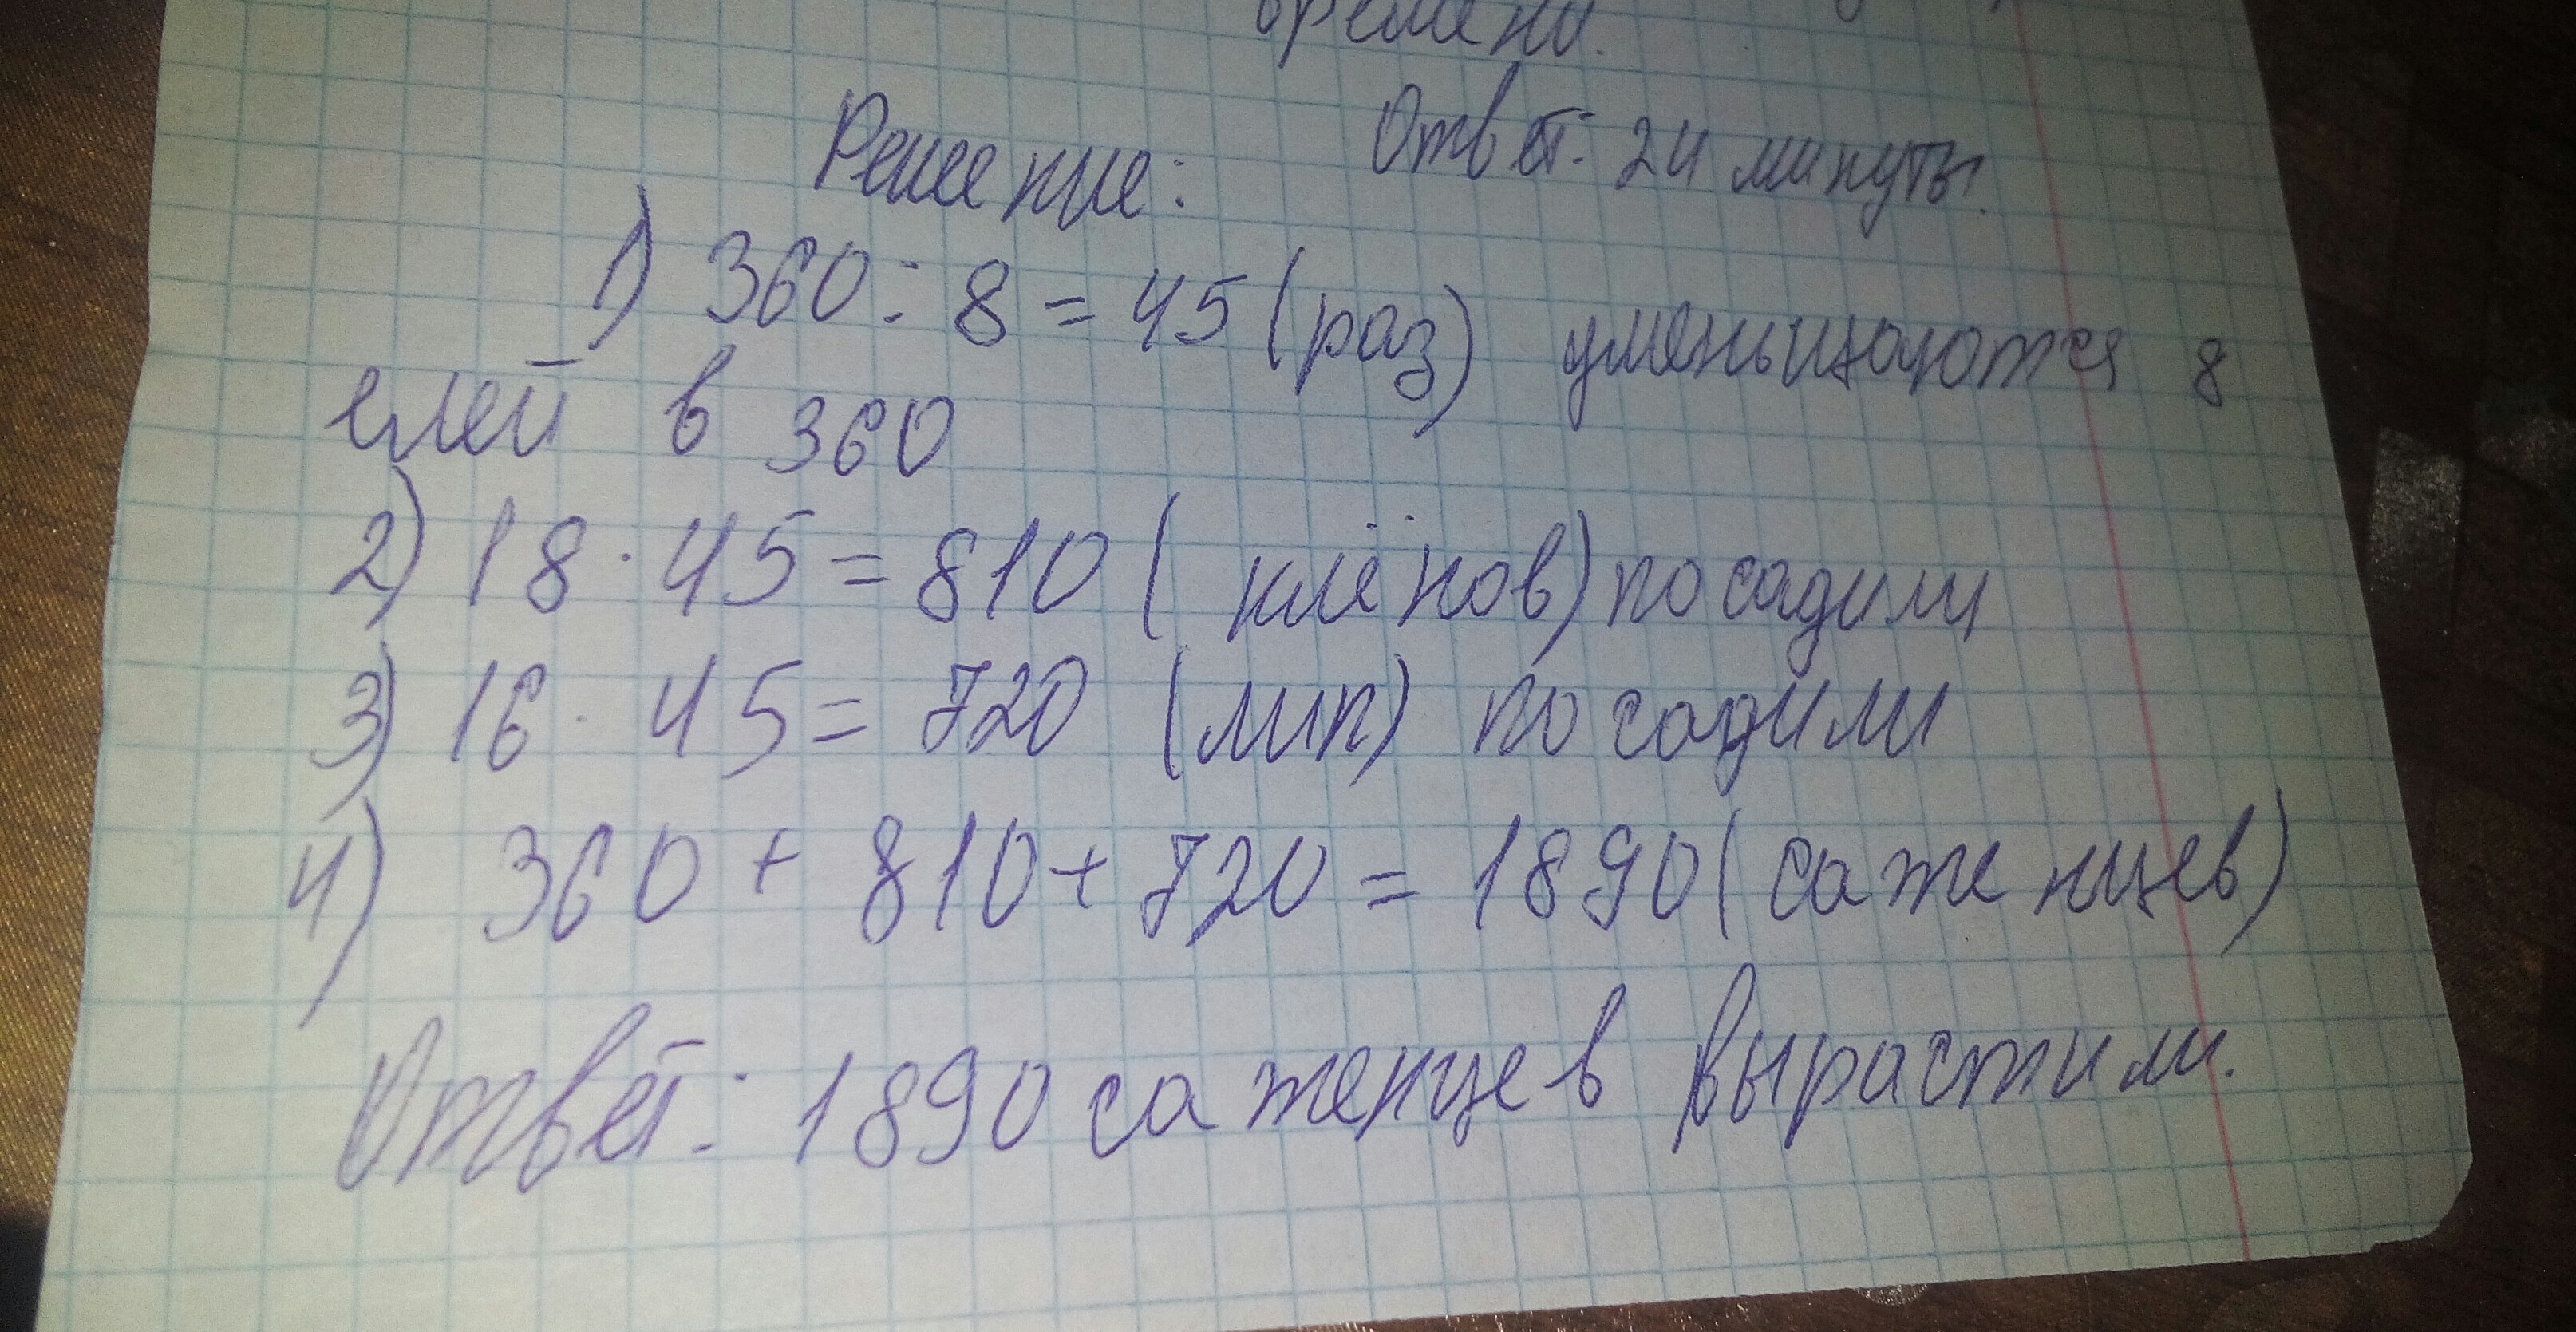 времени.
Ответ: 24 минуты.
Решение:
1) 360 : 8 = 45 (раз) уменьщаются 8
елей в 360
2) 18 · 45 = 810 ( клёнов) посадили
3) 16 · 45 = 720 (лип) посадили
4) 360 + 810 + 720 = 1890 (саженцев)
Ответ: 1890 саженцев вырастили.